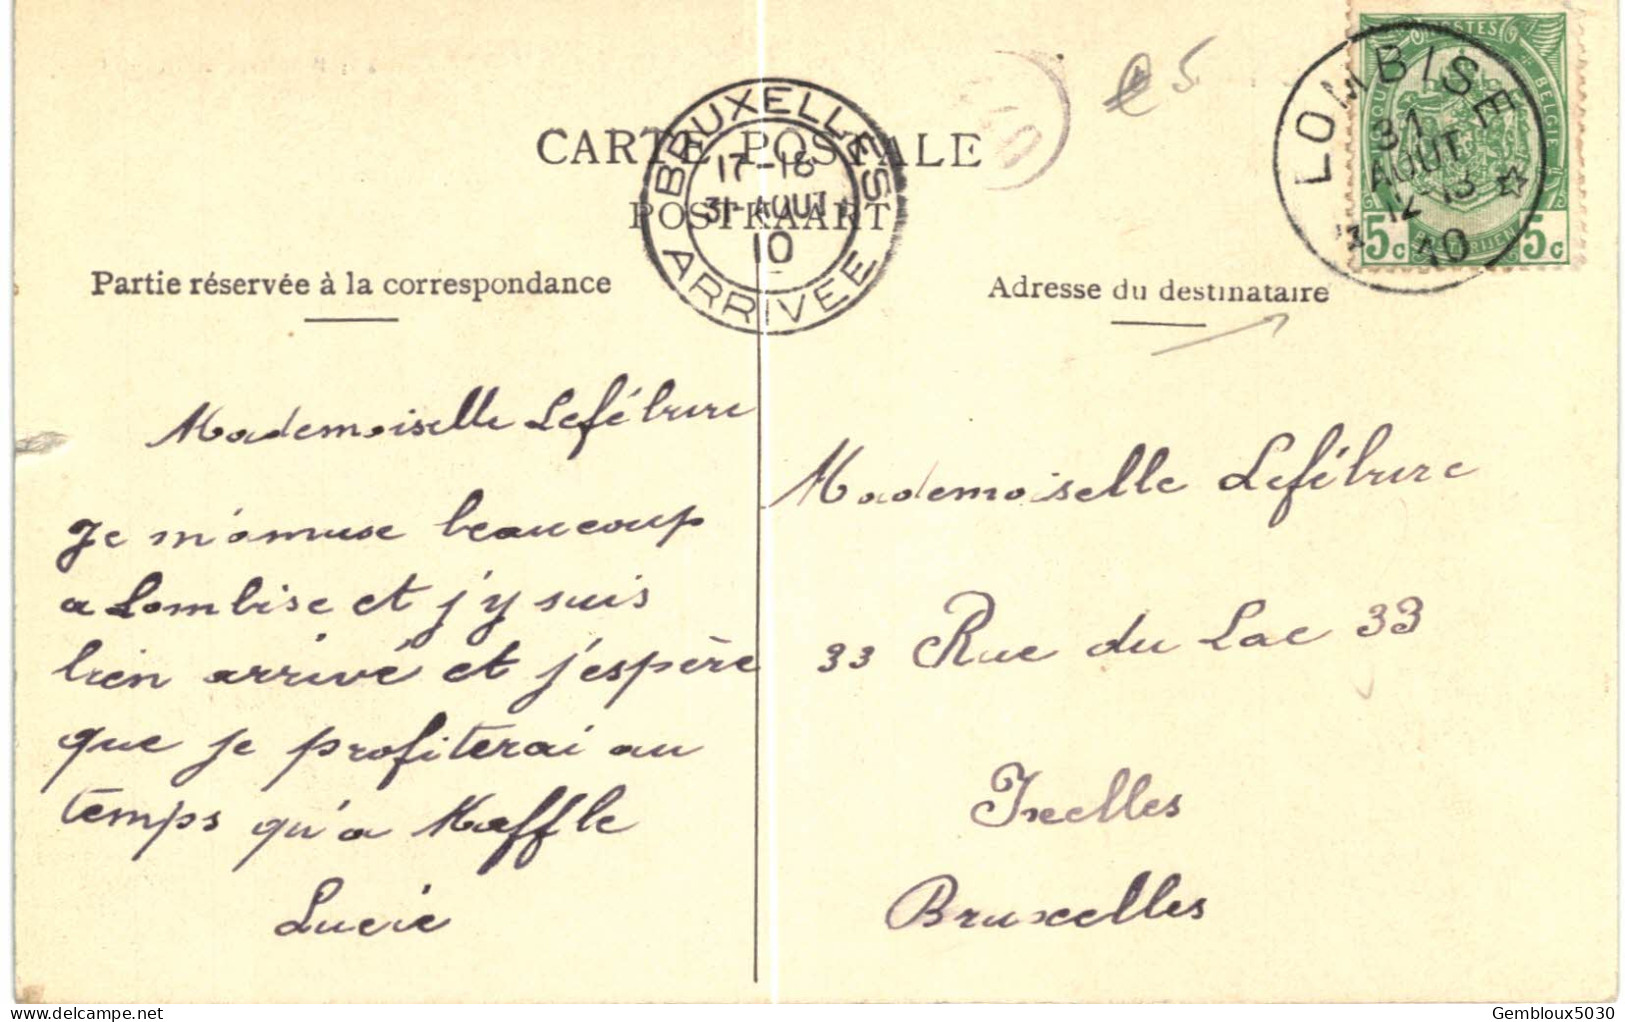 CARTE POSTALE
POSTKAART
BRUXELLES
17-18
31 AOUT
10
ARRIVEE
€5
LOMBISE
31
AOUT
12-13
10
POSTES
BELGIE
5c 5c
Partie réservée à la correspondance
Adresse du destinataire
Mademoiselle Lefébure
Je m'amuse beaucoup
a Lombise et j'y suis
bien arrivé et j'espère
que je profiterai au
temps qu'a Maffle
Lucie
Mademoiselle Lefébure
33 Rue du Lac 33
Ixelles
Bruxelles
Gembloux5030